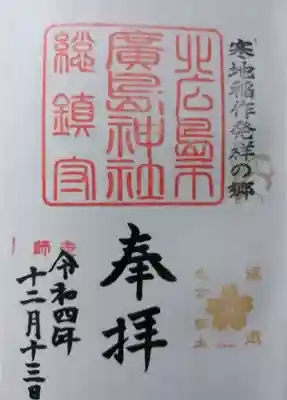 寒地稲作発祥の郷
北広島市
廣島神社
総鎮守
奉拝
師走
令和四年
十二月十三日